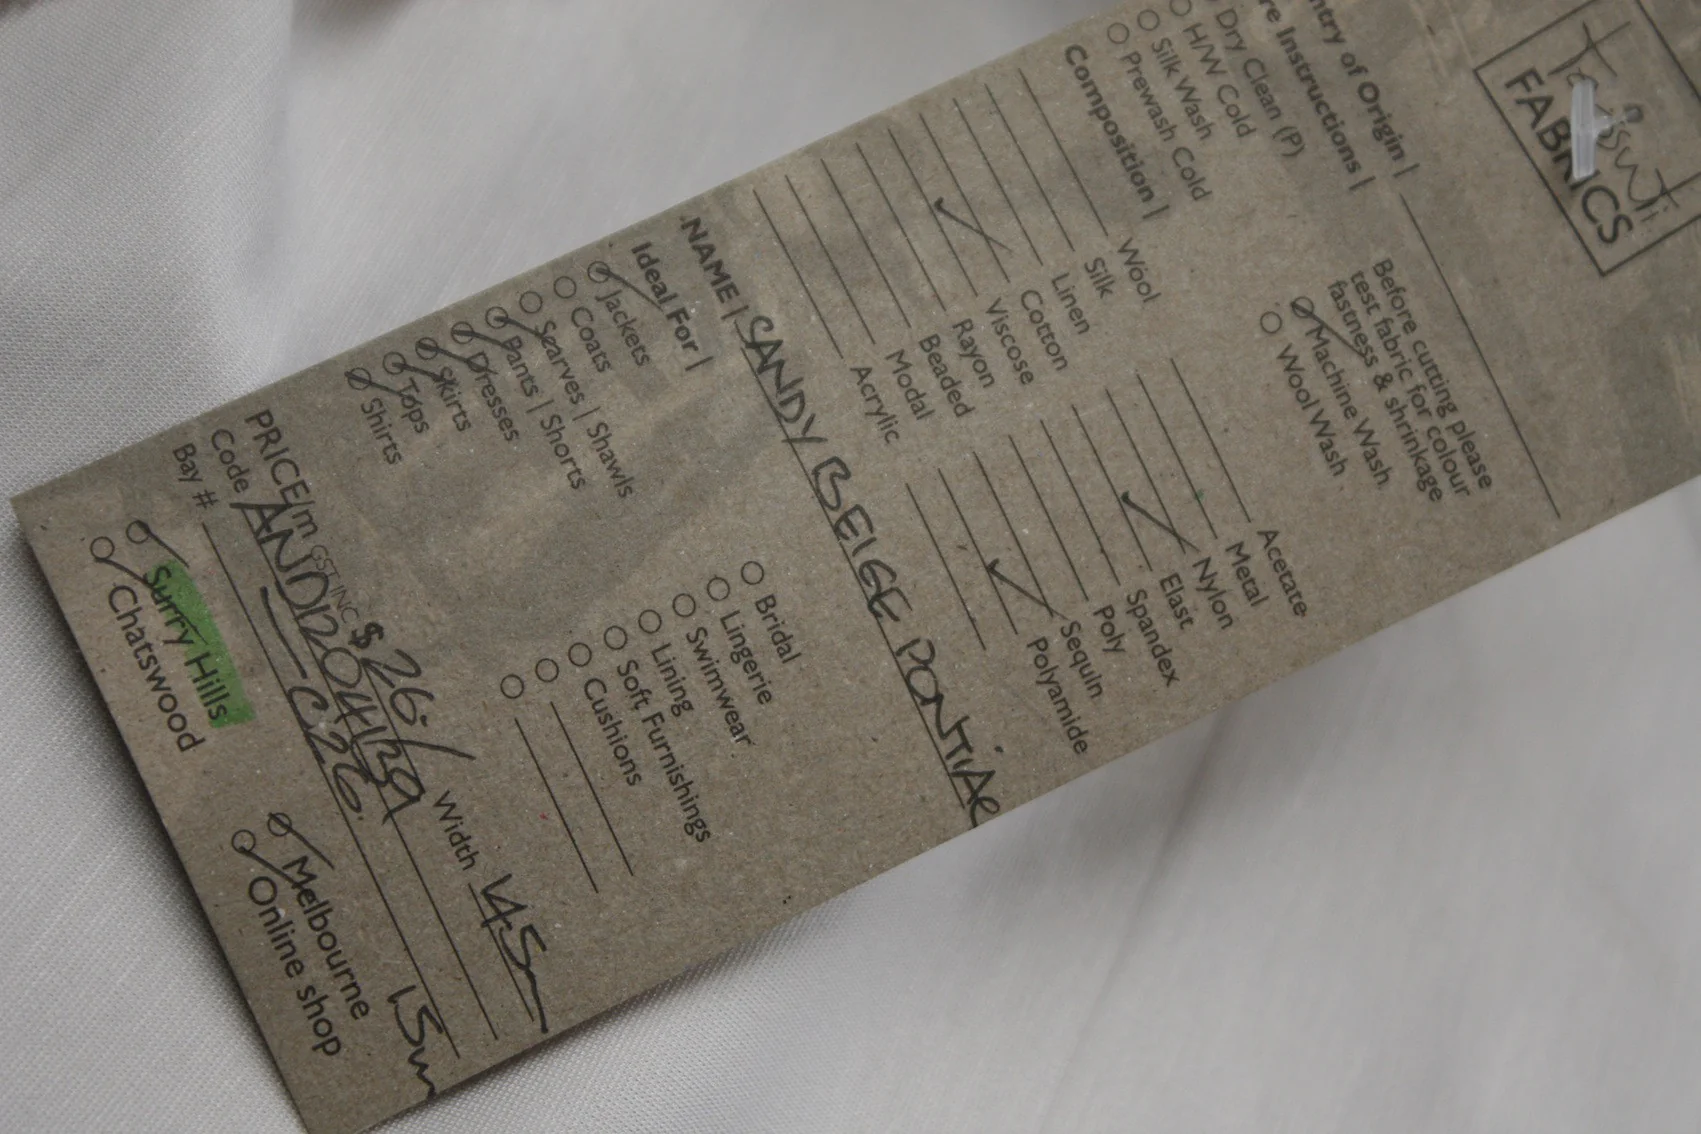 Tessuti
FABRICS
ntry of Origin |
re Instructions |
Before cutting please
test fabric for colour
fastness & shrinkage
Dry Clean (P)
H/W Cold
Silk Wash
Prewash Cold
Machine Wash
Wool Wash
Composition |
Wool
Silk
Linen
Cotton
Viscose
Rayon
Beaded
Modal
Acrylic
Acetate
Metal
Nylon
Elast
Spandex
Poly
Sequin
Polyamide
NAME | SANDY BEIGE PONTiAC
Ideal For |
Jackets
Coats
Scarves | Shawls
Pants | Shorts
Dresses
Skirts
Tops
Shirts
Bridal
Lingerie
Swimwear
Lining
Soft Furnishings
Cushions
PRICE/m GST INC $26. Width 145m
Code
Bay # C26. 15m
Surry Hills
Chatswood
Melbourne
Online shop